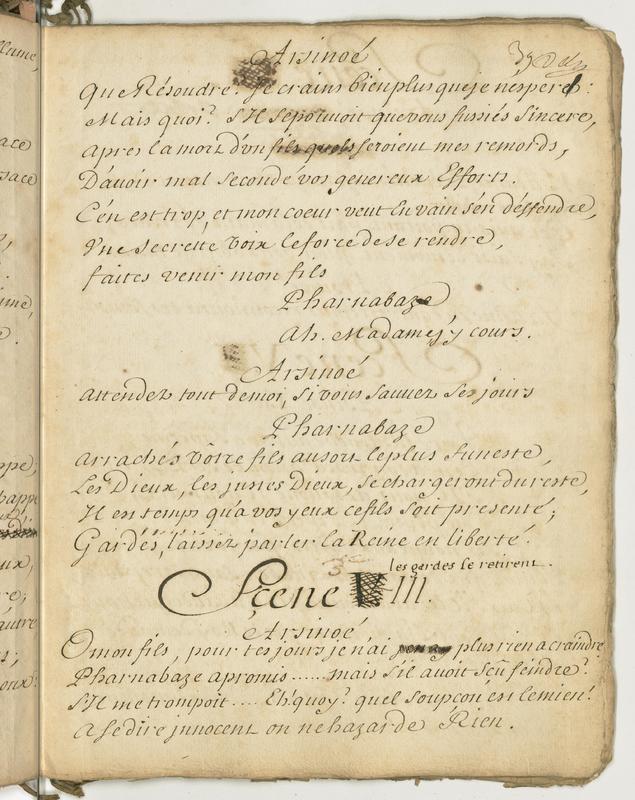 Arsinoé
39
Que Résoudre? Je crains bien plus que je n'espere:
Mais quoi? S'il se pouvoit que vous fussiés Sincere,
Apres la mort d'un fils quels seroient mes remords,
D'avoir mal Secondé vos genereux Efforts.
C'en est trop, et mon coeur veut En vain s'en déffendre,
Vne Secrette voix le force de se rendre,
faites venir mon fils
Pharnabaze
Ah. Madame, j'y cours.
Arsinoé
Attendez tout de moi, Si vous Sauvez Ses jours
Pharnabaze
Arrachés vôtre fils au sort le plus funeste,
Les Dieux, les justes Dieux, se chargeront du reste,
Il est temps qu'a vos yeux ce fils Soit presenté;
Gardes, laissez parler la Reine en liberté.
les gardes se retirent.
Sçene III.
Arsinoé
O mon fils, pour tes jours je n'ai plus rien a craindre
Pharnabaze a promis...... mais s'il avoit sçu feindre?
S'il me trompoit .... Eh quoy? quel soupçon est le mien!
A se dire jnnocent on ne hazarde Rien.